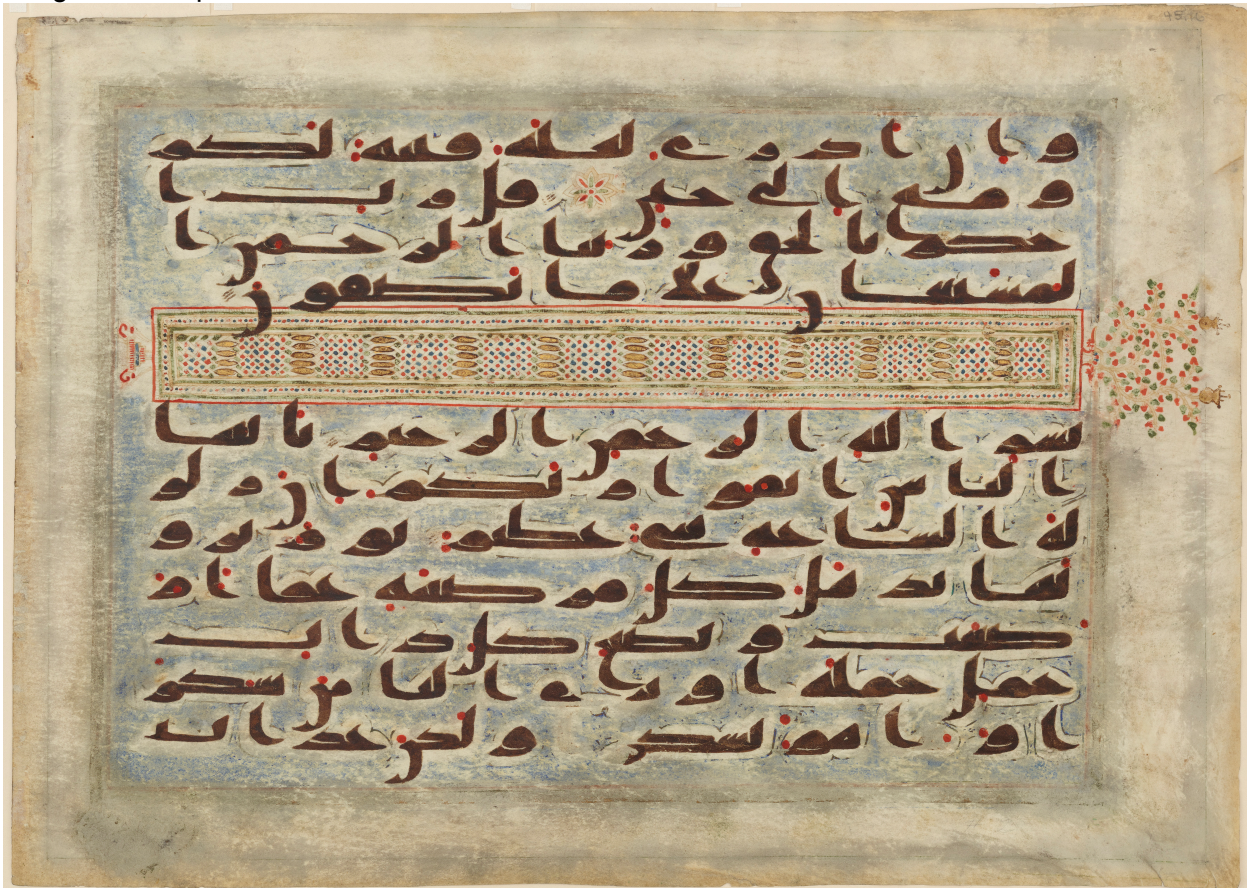 وان ادرى لعله فتنة لكم
ومتع الى حين قل رب ا
حكم بالحق وربنا الرحمن ا
لمستعان على ما تصفون
بسم الله الرحمن الرحيم يايها
الناس اتقوا ربكم ان زلز
لة الساعة شى عظيم يوم ترو
نها تذهل كل مرضعة عما ار
ضعت وتضع كل ذات
حمل حملها وترى الناس سكر
ى وما هم بسكرى ولكن عذاب